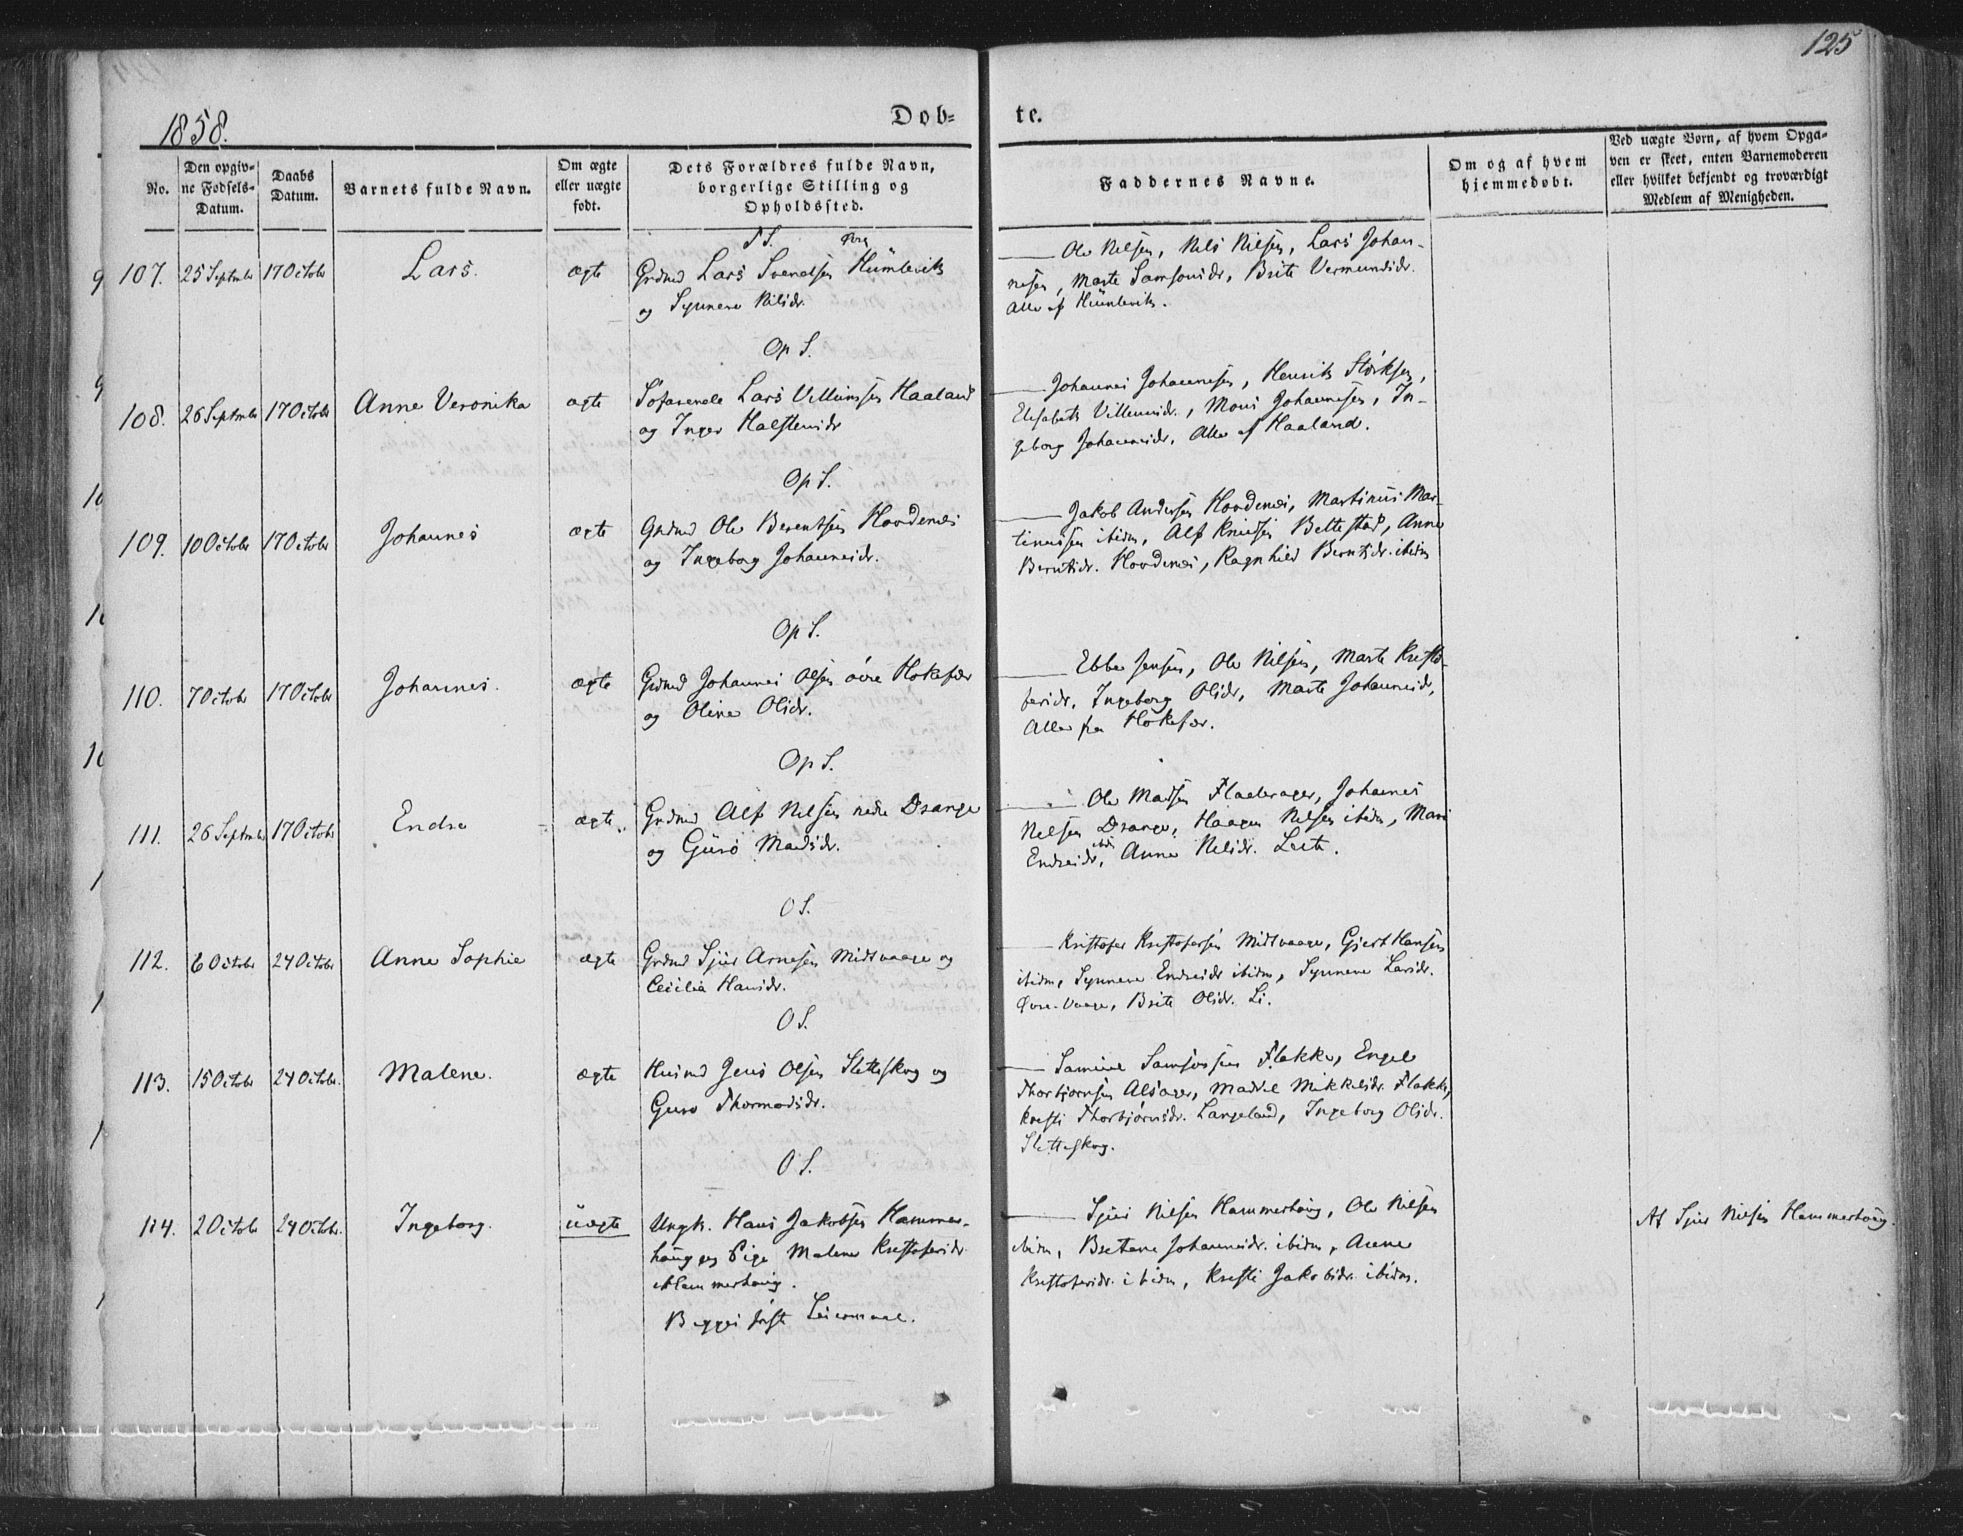 125
1858.
Døb=
te.
No.
Den opgiv=
ne Fødsels=
Datum.
Daabs
Datum.
Barnets fulde Navn.
Om ægte
eller uægte
født.
Dets Forældres fulde Navn,
borgerlige Stilling og
Opholdssted.
Faddernes Navne.
Om og af hvem
hjemmedøbt.
Ved uægte Børn, af hvem Opga=
ven er skeet, enten Barnemoderen
eller hvilket bekjendt og troværdigt
Medlem af Menigheden.
107. 25 Septmbr 17 Octobr Lars. ægte
Grdmd Lars Svendsen Hümlevik
og Synneve Nilsdr.
Ole Nilsen, Nils Nilsen, Lars Johan-
nesen, Marte Samsonsdr, Brite Vermundsdr.
Alle af Hümlevik.
Op S.
108. 26 Septmbr 17 Octobr Anne Veronika ægte
Lars Villumsen Haaland
og Inger Halstensdr
Johannes Johannesen, Henrik Størksen,
Elisabeth Villumsdr., Mons Johannesen, In-
geborg Johannesdr. Alle af Haaland.
Op S.
109. 10 Octobr 17 Octobr Johannes ægte
Grdmd Ole Berentsen Hovdenæs
og Ingeborg Johannesdr.
Jakob Andersen Hovdenæs, Martinus Mar-
tinussen ibidm, Alf Knudsen Bettestad, Anne
Berntsdr. Hovdenæs, Ragnhild Berntsdr. ibidm
Op S.
110. 7 Octobr 17 Octobr Johannes. ægte
Grdmd Johannes Olsen øvre Hokefær
og Oline Olsdr.
Ebbe Jensen, Ole Nilsen, Marte Kristo-
fersdr, Ingeborg Olsdr, Marte Johannesdr,
Alle fra Hokefær.
Op S.
111. 26 Septmbr 17 Octobr Endre ægte
Grdmd Alf Nilsen nedre Drange
og Gürø Madsdr.
Ole Madsen Fladerager, Johannes
Nilsen Drange, Haagen Nilsen ibidm, Mari
Endresdr, ibid Anne Nilsdr.
O S.
112. 6 Octobr 24 Octobr Anne Sophie ægte
Grdmd Sjur Arnesen Midtvaage og
Cecilia Hansdr.
Kristofer Kristofersen Midtvaage, Gjert Hansen
ibidm, Synneve Endresdr ibidm, Synneve Larsdr.
Øvre-Vaage, Brite Olsdr. Li.
O S.
113. 15 Octobr 24 Octobr. Malene. ægte
Husmd Jens Olsen Sletteskog og
Guro Thormodsdr.
Samuel Samsonsen Flakke, Engel
Thorbjørnsen Alsager, Mikkelsdr. Flakke,
Kristi Thorbjørnsdr. Langeland, Ingeborg Olsdr.
Sletteskog.
O S.
114. 2 Octobr 24 Octobr. Ingeborg. üægte
Ungk. Hans Jakobsen Hammer-
haug og Pige Malene Kristofersdr
Hammerhaug.
Begges første Leiermaal.
Sjur Nilsen Hammerhaug, Ole Nilsen
ibidm, Johannesdr. ibidm, Anne
Kristofersdr. ibidm, Kristi Jakobsdr. ibidm.
Af Sjur Nilsen Hammerhaug.